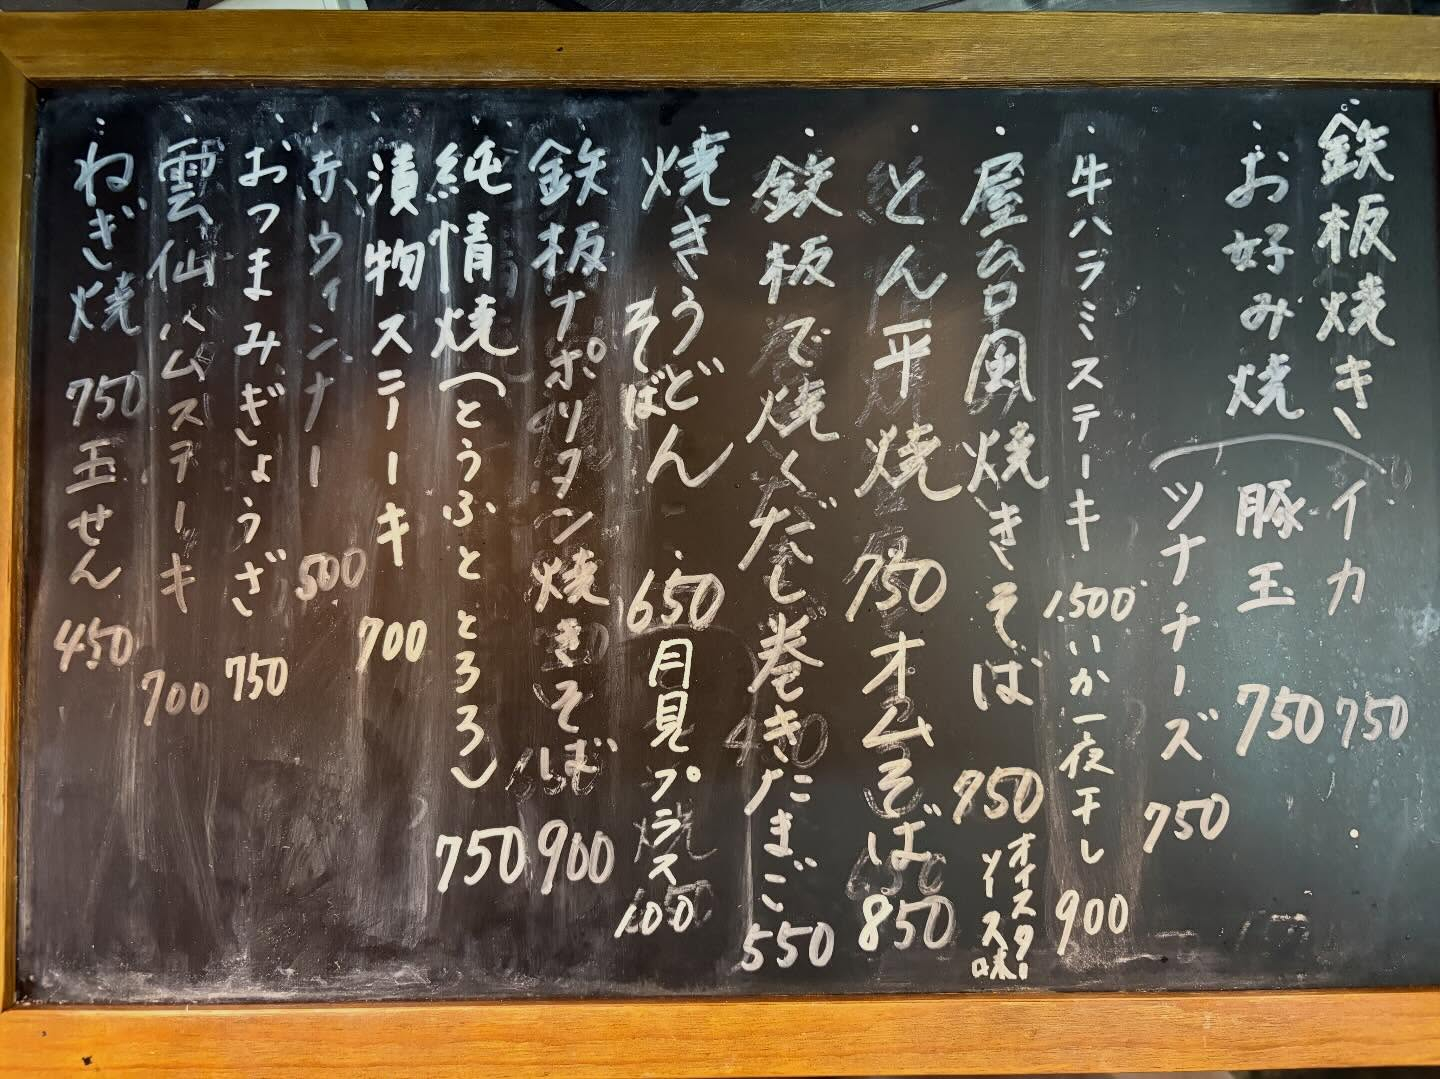 鉄板焼き イカ 750
お好み焼 豚玉 750
ツナチーズ 750
牛ハラミステーキ 1.500 いか一夜干し 900
屋台風焼きそば 750 オイスターソース味
とん平焼 750 オムそば 850
鉄板で焼くだし巻きたまご 550
焼きうどん そば 650 月見プラス 100
鉄板ナポリタン焼きそば 900
純情焼(とうふととろろ) 750
漬物ステーキ 700
赤ウィンナー 500
おつまみぎょうざ 750
雲仙ハムステーキ 700
ねぎ焼 750 玉せん 450